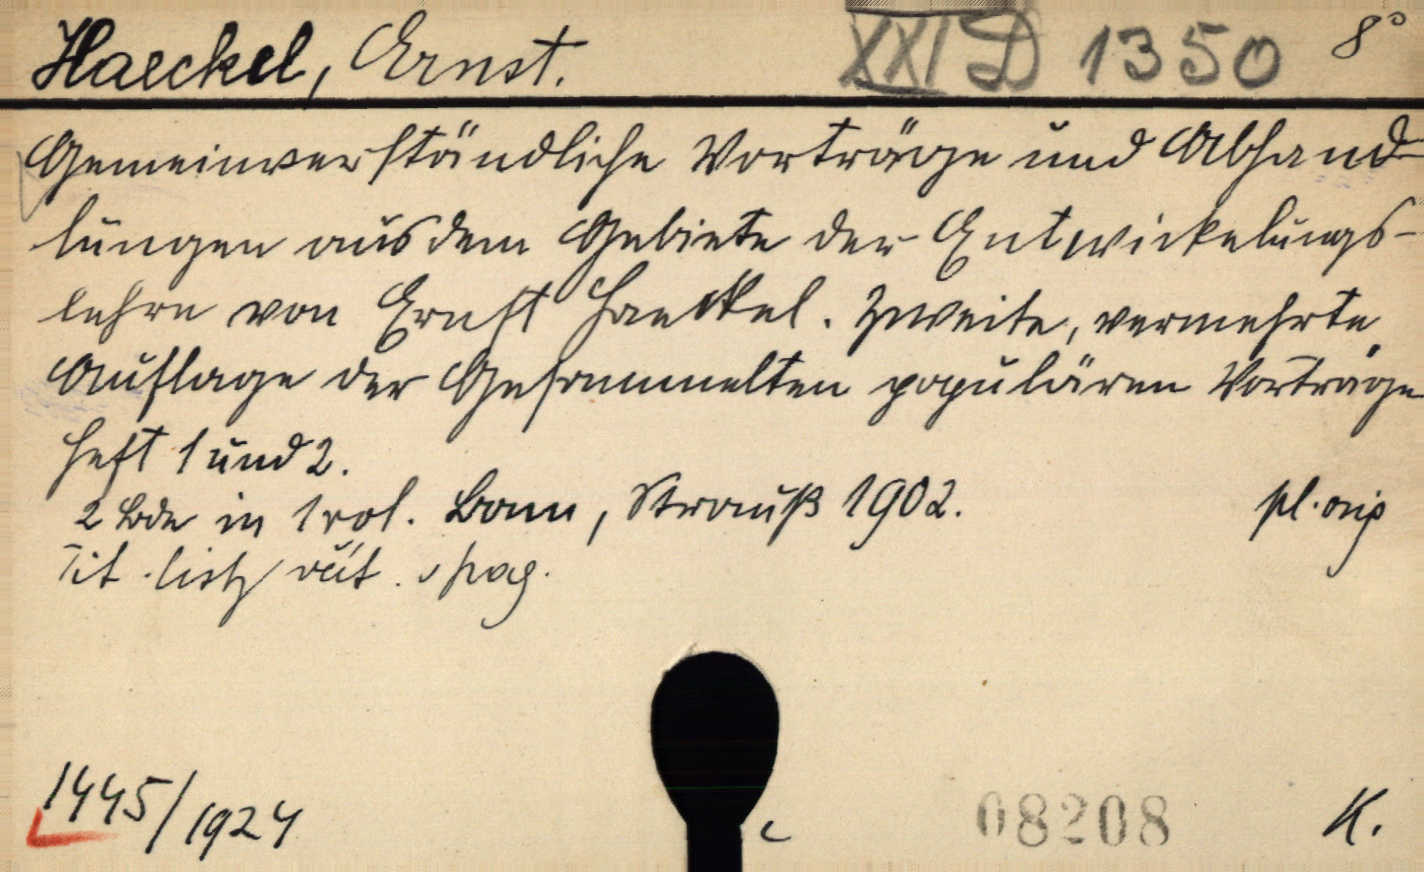 Haeckel, Ernst. XXI D 1350 8°
Gemeinverständliche Vorträge und Abhand-
lungen aus dem Gebiete der Entwickelungs-
lehre von Ernst Haeckel. Zweite, vermehrte
Auflage der Gesammelten populären Vorträge
Heft 1 und 2.
2 Bde in 1 vol. Bonn, Strauß 1902. pl. orig
Tit. listy
1445/1924 c 08208 K.